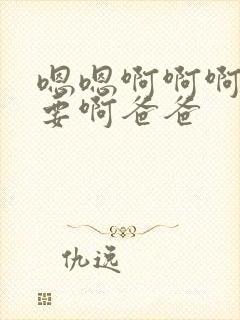 嗯嗯啊啊啊
要啊爸爸
仇远